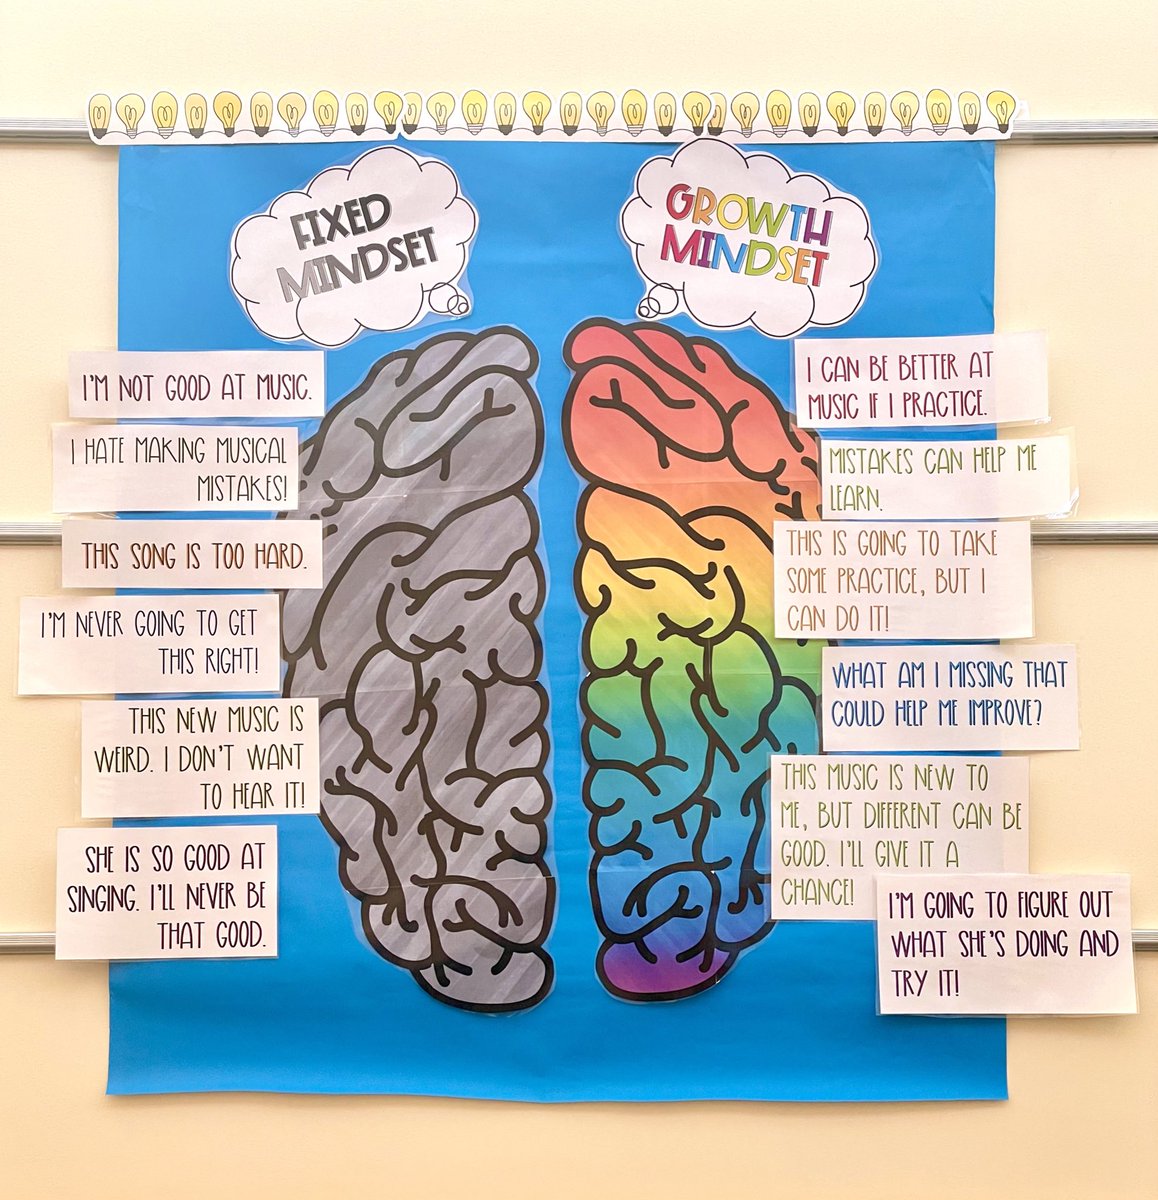 FIXED
MINDSET
I'M NOT GOOD AT MUSIC.
I HATE MAKING MUSICAL
MISTAKES!
THIS SONG IS TOO HARD.
I'M NEVER GOING TO GET
THIS RIGHT!
THIS NEW MUSIC IS
WEIRD. I DON'T WANT
TO HEAR IT!
SHE IS SO GOOD AT
SINGING. I'LL NEVER BE
THAT GOOD.
GROWTH
MINDSET
I CAN BE BETTER AT
MUSIC IF I PRACTICE.
MISTAKES CAN HELP ME
LEARN.
THIS IS GOING TO TAKE
SOME PRACTICE, BUT I
CAN DO IT!
WHAT AM I MISSING THAT
COULD HELP ME IMPROVE?
THIS MUSIC IS NEW TO
ME, BUT DIFFERENT CAN BE
GOOD. I'LL GIVE IT A
CHANCE!
I'M GOING TO FIGURE OUT
WHAT SHE'S DOING AND
TRY IT!